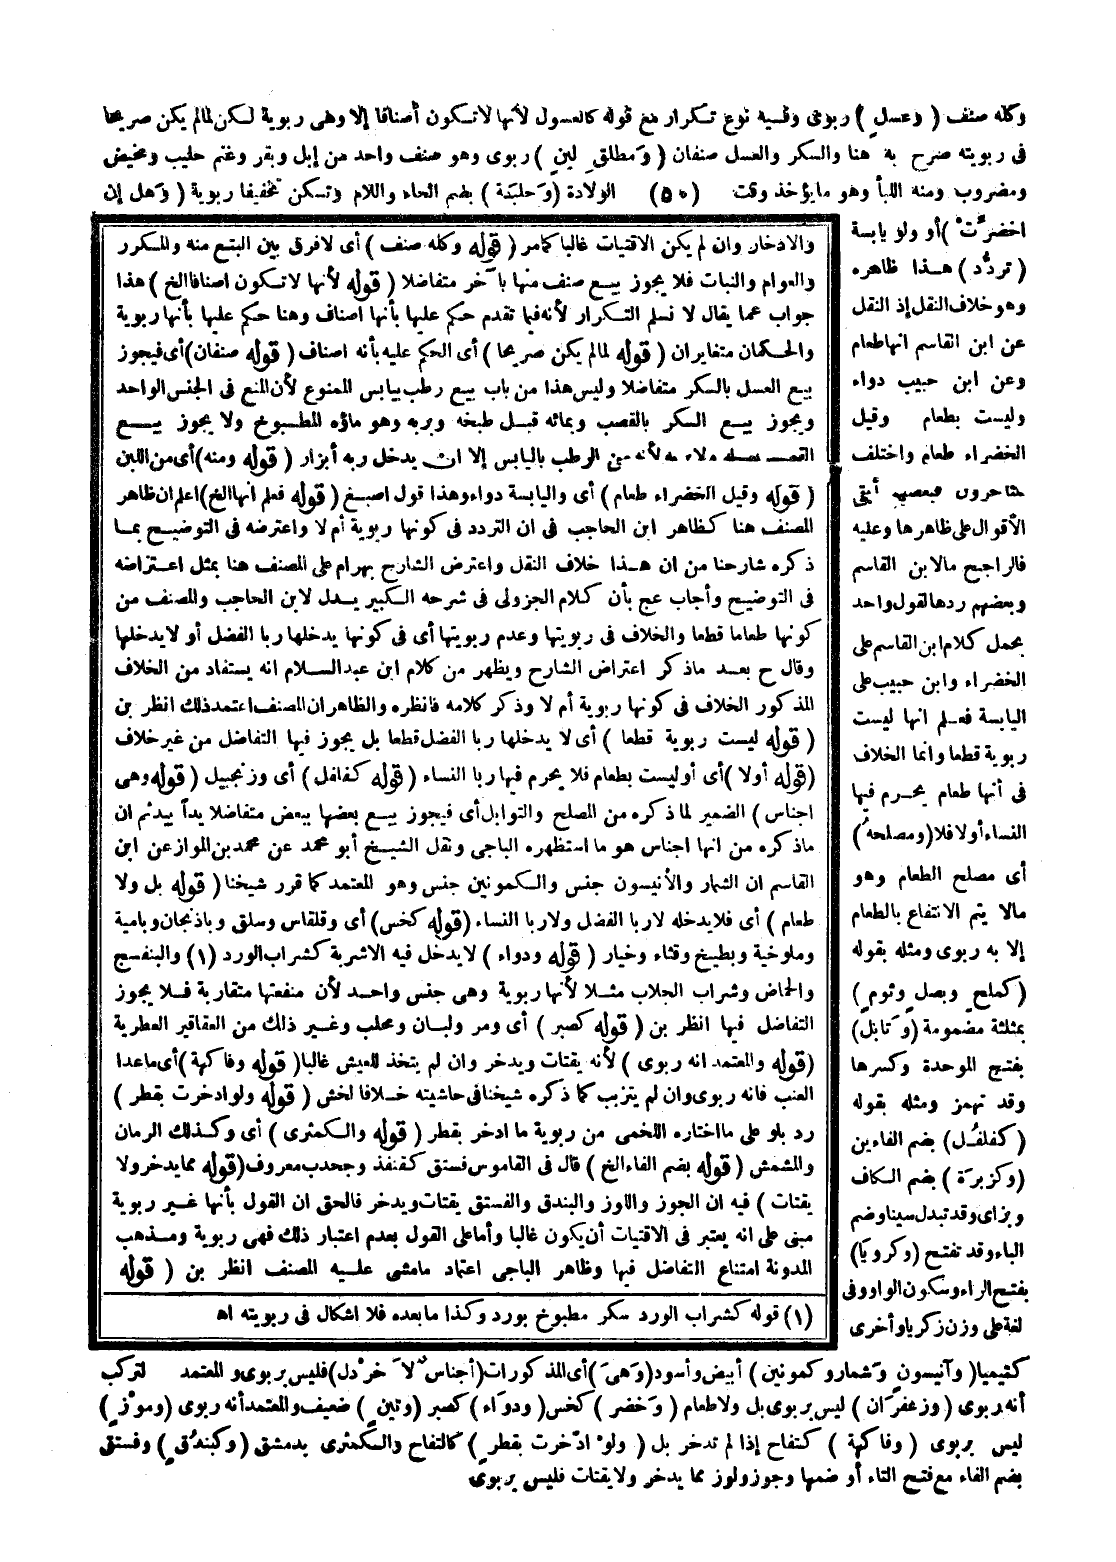 وكله صنف ( وعسلٍ ) ربوى وفيه نوع تكرار مع قوله كالعسول لأنها لاتكون أصنافا إلا وهى ربوية لكن لمالم يكن صريحا
فى ربويته صرح به هنا والسكر والعسل صنفان ( ومطلقِ لبنٍ ) ربوى وهو صنف واحد من إبل وبقر وغنم حليب ومخيض
ومضروب ومنه اللبأ وهو مايؤخذ وقت (٥٠) الولادة (وَحلبَة ) بضم الحاء واللام وتسكن تخفيفا ربوية ( وَهل إن
اخضرَّتْ )أو ولو يابسة
( تردُّد ) هذا ظاهره
وهو خلاف النقل إذ النقل
عن ابن القاسم انها طعام
وعن ابن حبيب دواء
وليست بطعام وقيل
الخضراء طعام واختلف
فبعضهم أبقى
الأقوال على ظاهرها وعليه
فالراجح مالابن القاسم
وبعضهم ردها لقول واحد
بحمل كلام ابن القاسم على
الخضراء وابن حبيب على
اليابسة فعلم انها ليست
ربوية قطعا وانما الخلاف
فى أنها طعام يحرم فيها
النساء أولا فلا (ومصلحهُ)
أى مصلح الطعام وهو
مالا يتم الانتفاع بالطعام
إلا به ربوى ومثله بقوله
(كملحٍ وبصلٍ وثومٍ )
بمثلثة مضمومة (وَتابَل)
بفتح الموحدة وكسرها
وقد تهمز ومثله بقوله
(كفلفُل) بضم الفاءين
(وكزبرَة ) بضم الكاف
وبزاى وقد تبدل سينا وضم
الباء وقد تفتح (وكرويَا)
بفتح الراء وسكون الواو وفى
لغة على وزن زكريا وأخرى
والادخار وان لم يكن الاقتيات غالبا كمامر ( قوله وكله صنف ) أى لافرق بين البتع منه والمسكرور
والعوام والنبات فلا يجوز بيع صنف منها بآخر متفاضلا ( قوله لأنها لاتكون اصنافا الخ ) هذا
جواب عما يقال لا نسلم التكرار لأنه فيما تقدم حكم عليها بأنها اصناف وهنا حكم عليها بأنها ربوية
والحكمان متغايران ( قوله لمالم يكن صريحا ) أى الحكم عليه بأنه اصناف ( قوله صنفان) أى فيجوز
بيع العسل بالسكر متفاضلا وليس هذا من باب بيع رطب بيابس الممنوع لأن المنع فى الجنس الواحد
ويجوز بيع السكر بالقصب وبمائه قبل طبخه وبربه وهو ماؤه المطبوخ ولا يجوز بيع
لأنه من الرطب باليابس إلا ان يدخل ربه أبزار ( قوله ومنه) أى من اللبن
( قوله وقيل الخضراء طعام ) أى واليابسة دواء وهذا قول اصبغ ( قوله فعلم انها الخ) اعلم ان ظاهر
المصنف هنا كظاهر ابن الحاجب فى ان التردد فى كونها ربوية أم لا واعترضه فى التوضيح بما
ذكره شارحنا من ان هذا خلاف النقل واعترض الشارح بهرام على المصنف هنا بمثل اعتراضه
فى التوضيح وأجاب عج بأن كلام الجزولى فى شرحه الكبير يدل لابن الحاجب والمصنف من
كونها طعاما قطعا والخلاف فى ربويتها وعدم ربويتها أى فى كونها يدخلها ربا الفضل أو لا يدخلها
وقال ح بعد ماذكر اعتراض الشارح ويظهر من كلام ابن عبد السلام انه يستفاد من الخلاف
المذكور الخلاف فى كونها ربوية أم لا وذكر كلامه فانظره والظاهر ان المصنف اعتمد ذلك انظر بن
( قوله ليست ربوية قطعا ) أى لا يدخلها ربا الفضل قطعا بل يجوز فيها التفاضل من غير خلاف
(قوله أولا )أى أوليست بطعام فلا يحرم فيها ربا النساء ( قوله كفلفل ) أى وزنجبيل ( قوله وهى
اجناس ) الضمير لما ذكره من المصلح والتوابل أى فيجوز بيع بعضها ببعض متفاضلا يداً بيد ثم ان
ماذكره من انها اجناس هو ما استظهره الباجى ونقل الشيخ أبو محمد عن محمد بن المواز عن ابن
القاسم ان الشمار والأنيسون جنس والكمونين جنس وهو المعتمد كما قرر شيخنا ( قوله بل ولا
طعام ) أى فلا يدخله لا ربا الفضل ولا ربا النساء (قوله كخس) أى وقلقاس وسلق وباذنجان وبامية
وملوخية وبطيخ وقثاء وخيار ( قوله ودواء ) لا يدخل فيه الاشربة كشراب الورد (١) والبنفسج
والحماض وشراب الجلاب مثلا لأنها ربوية وهى جنس واحد لأن منفعتها متقاربة فلا يجوز
التفاضل فيها انظر بن ( قوله كصبر ) أى ومر ولبان ومحلب وغير ذلك من العقاقير العطرية
(قوله والمعتمد انه ربوى ) لأنه يقتات ويدخر وان لم يتخذ للعيش غالبا( قوله وفاكهة )أى ماعدا
العنب فانه ربوى وان لم يتزبب كما ذكره شيخنا فى حاشيته خلافا لخش ( قوله ولو ادخرت بقطر )
رد بلو على ما اختاره اللخمى من ربوية ما ادخر بقطر ( قوله والكمثرى ) أى وكذلك الرمان
والمشمش ( قوله بضم الفاء الخ ) قال فى القاموس فستق كقنفذ وجحدب معروف(قوله مما يدخر ولا
يقتات ) فيه ان الجوز واللوز والبندق والفستق يقتات ويدخر فالحق ان القول بأنها غير ربوية
مبنى على انه يعتبر فى الاقتيات أن يكون غالبا وأما على القول بعدم اعتبار ذلك فهى ربوية ومذهب
المدونة امتناع التفاضل فيها وظاهر الباجى اعتماد مامشى عليه المصنف انظر بن ( قوله
(١) قوله كشراب الورد سكر مطبوخ بورد وكذا مابعده فلا اشكال فى ربويته اه
كثيميا( وآنيسونٍ وَشمار وكمونين ) أبيض وأسود (وَهىَ )أى المذكورات (أجناسٌ لاَ خردل) فليس بربوى والمعتمد لتركب
أنه ربوى (وزعفرَان ) ليس بربوى بل ولا طعام ( وَخضر ) كخس ( ودوَاء ) كصبر (وتينٍ ) ضعيف والمعتمد أنه ربوى (وموْزٍ )
ليس بربوى ( وفاكهة ) كتفاح إذا لم تدخر بل ( ولوْ ادّخرت بقطرٍ ) كالتفاح والكمثرى بدمشق ( وكبندُقٍ ) وفستق
بضم الفاء مع فتح التاء أو ضمها وجوز ولوز مما يدخر ولا يقتات فليس بربوى